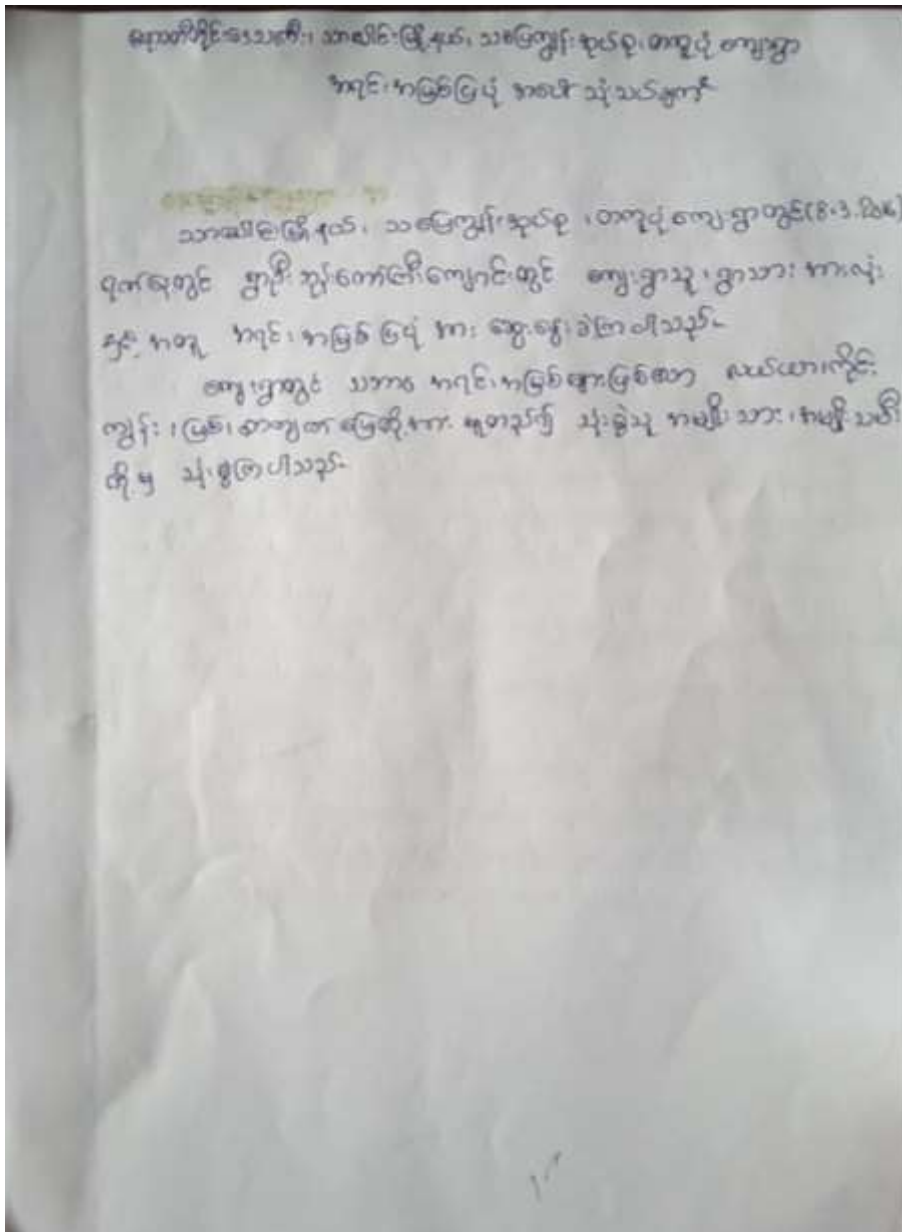 ဧရာဝတီတိုင်းဒေသကြီး၊ သာပေါင်းမြို့နယ်၊ သပြေကျွန်းအုပ်စု၊ တကူပုံ ကျေးရွာ
အရင်းအမြစ်ပြပုံ အပေါ် သုံးသပ်ချက်
သာပေါင်းမြို့နယ်၊ သပြေကျွန်းအုပ်စု၊ တကူပုံ ကျေးရွာတွင် (8.3.2016)
ရက်နေ့တွင် ရွာဦး ဘုန်းတော်ကြီးကျောင်းတွင် ကျေးရွာသူ၊ ရွာသား အားလုံး
နှင့် အတူ အရင်းအမြစ်ပြပုံ အား ဆွေးနွေးခဲ့ကြပါသည်။
ကျေးရွာတွင် သဘာဝ အရင်းအမြစ်များဖြစ်သော လယ်ယာ၊ ကိုင်း
ကျွန်း၊ မြစ်၊ မြေတို့အား မူတည်၍ သုံးစွဲသူ အမျိုးသား၊ အမျိုးသမီး
တို့မှ သုံးစွဲကြပါသည်။